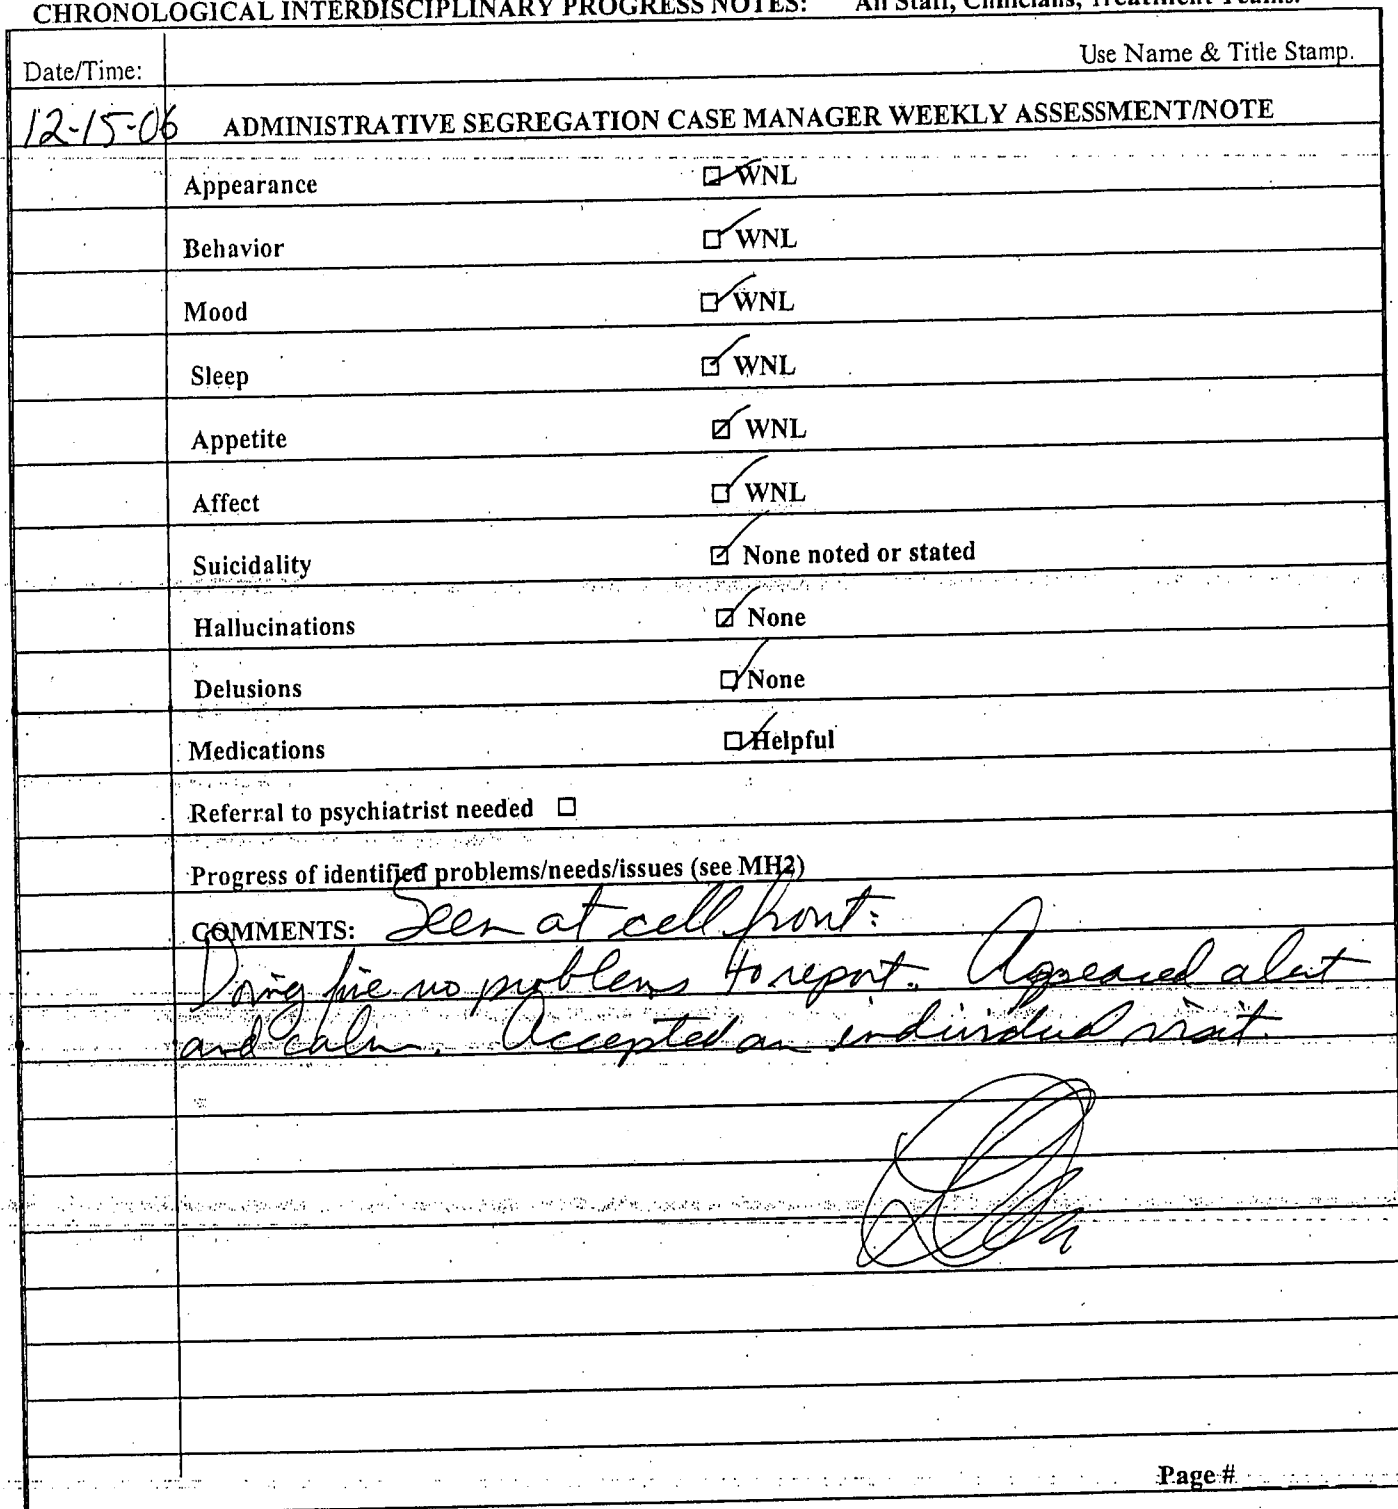 CHRONOLOGICAL INTERDISCIPLINARY PROGRESS NOTES: All Staff, Clinicians, Treatment Teams.
Use Name & Title Stamp.
Date/Time:
12-15-06 ADMINISTRATIVE SEGREGATION CASE MANAGER WEEKLY ASSESSMENT/NOTE
Appearance WNL
Behavior WNL
Mood WNL
Sleep WNL
Appetite WNL
Affect WNL
Suicidality None noted or stated
Hallucinations None
Delusions None
Medications Helpful
Referral to psychiatrist needed
Progress of identified problems/needs/issues (see MH2)
COMMENTS: Seen at cell front:
Doing fine no problems to report. Appeared alert
and calm. Accepted an individual visit.
Page #